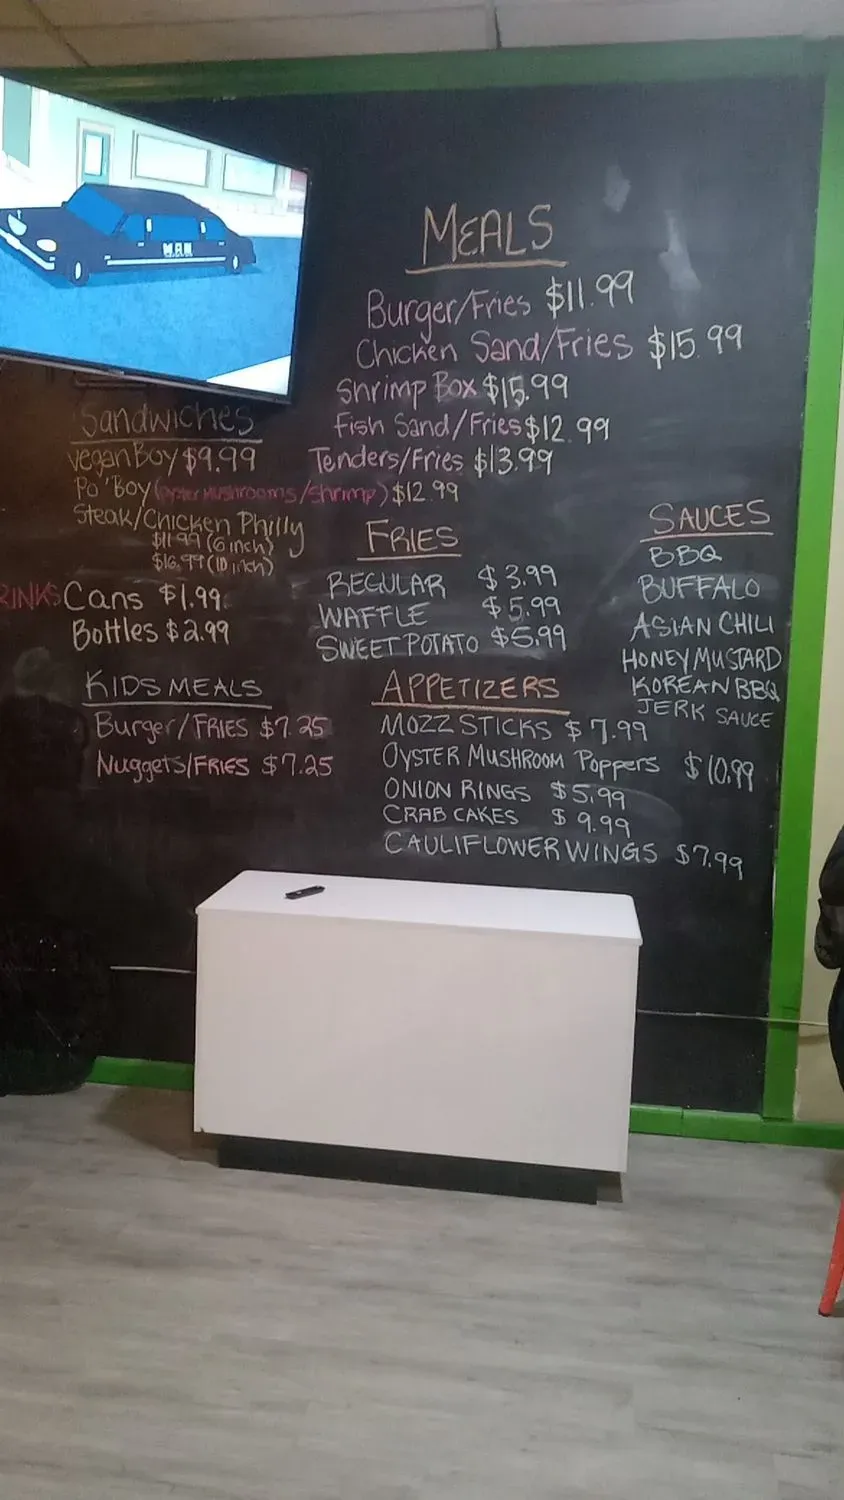 M.A.N.
MEALS
Burger/Fries $11.99
Chicken Sand/Fries $15.99
Shrimp Box $15.99
Fish Sand/Fries $12.99
Tenders/Fries $13.99
Sandwiches
Vegan Boy $9.99
Po'Boy (oyster mushrooms/shrimp) $12.99
Steak/Chicken Philly
$11.99 (6 inch)
$16.99 (10 inch)
RINKS Cans $1.99
Bottles $2.99
KIDS MEALS
Burger/FRIES $7.25
Nuggets/FRIES $7.25
FRIES
REGULAR $3.99
WAFFLE $5.99
SWEET POTATO $5.99
SAUCES
BBQ
BUFFALO
ASIAN CHILI
HONEY MUSTARD
KOREAN BBQ
JERK SAUCE
APPETIZERS
MOZZ STICKS $7.99
OYSTER MUSHROOM Poppers $10.99
ONION RINGS $5.99
CRAB CAKES $9.99
CAULIFLOWER WINGS $7.99